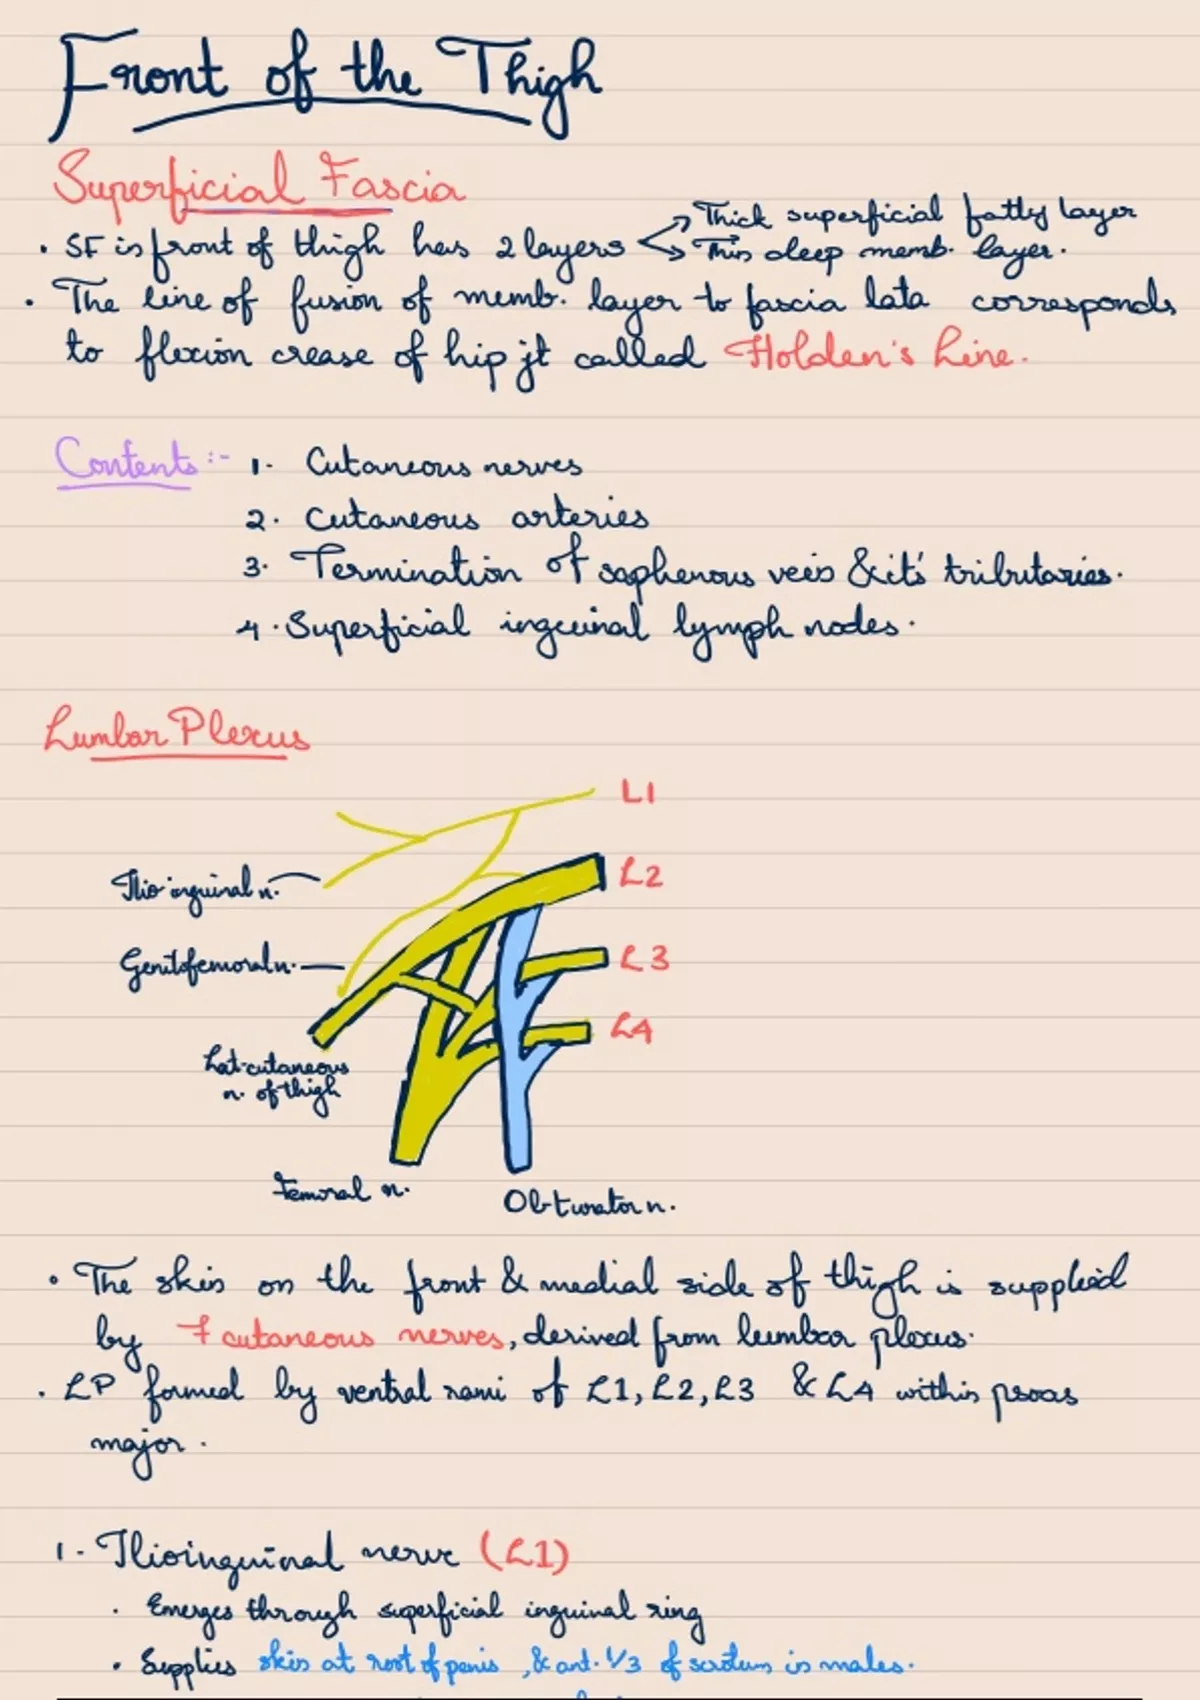 Front of the Thigh
Superficial Fascia
• SF in front of thigh has 2 layers
Thick superficial fatty layer
Thin deep memb. layer.
• The line of fusion of memb. layer to fascia lata corresponds
to flexion crease of hip jt called Holden's Line.
Contents :- 1. Cutaneous nerves
2. Cutaneous arteries
3. Termination of saphenous vein & it's tributaries.
4. Superficial inguinal lymph nodes.
Lumbar Plexus
L1
L2
Ilio inguinal n.
L3
Genitofemoral n.
L4
Lat. cutaneous
n. of thigh
Femoral n.
Obturator n.
• The skin on the front & medial side of thigh is supplied
by 7 cutaneous nerves, derived from lumbar plexus.
• LP formed by ventral rami of L1, L2, L3 & L4 within psoas
major.
1. Ilioinguinal nerve (L1)
• Emerges through superficial inguinal ring
• Supplies skin at root of penis, & ant. 1/3 of scrotum in males.